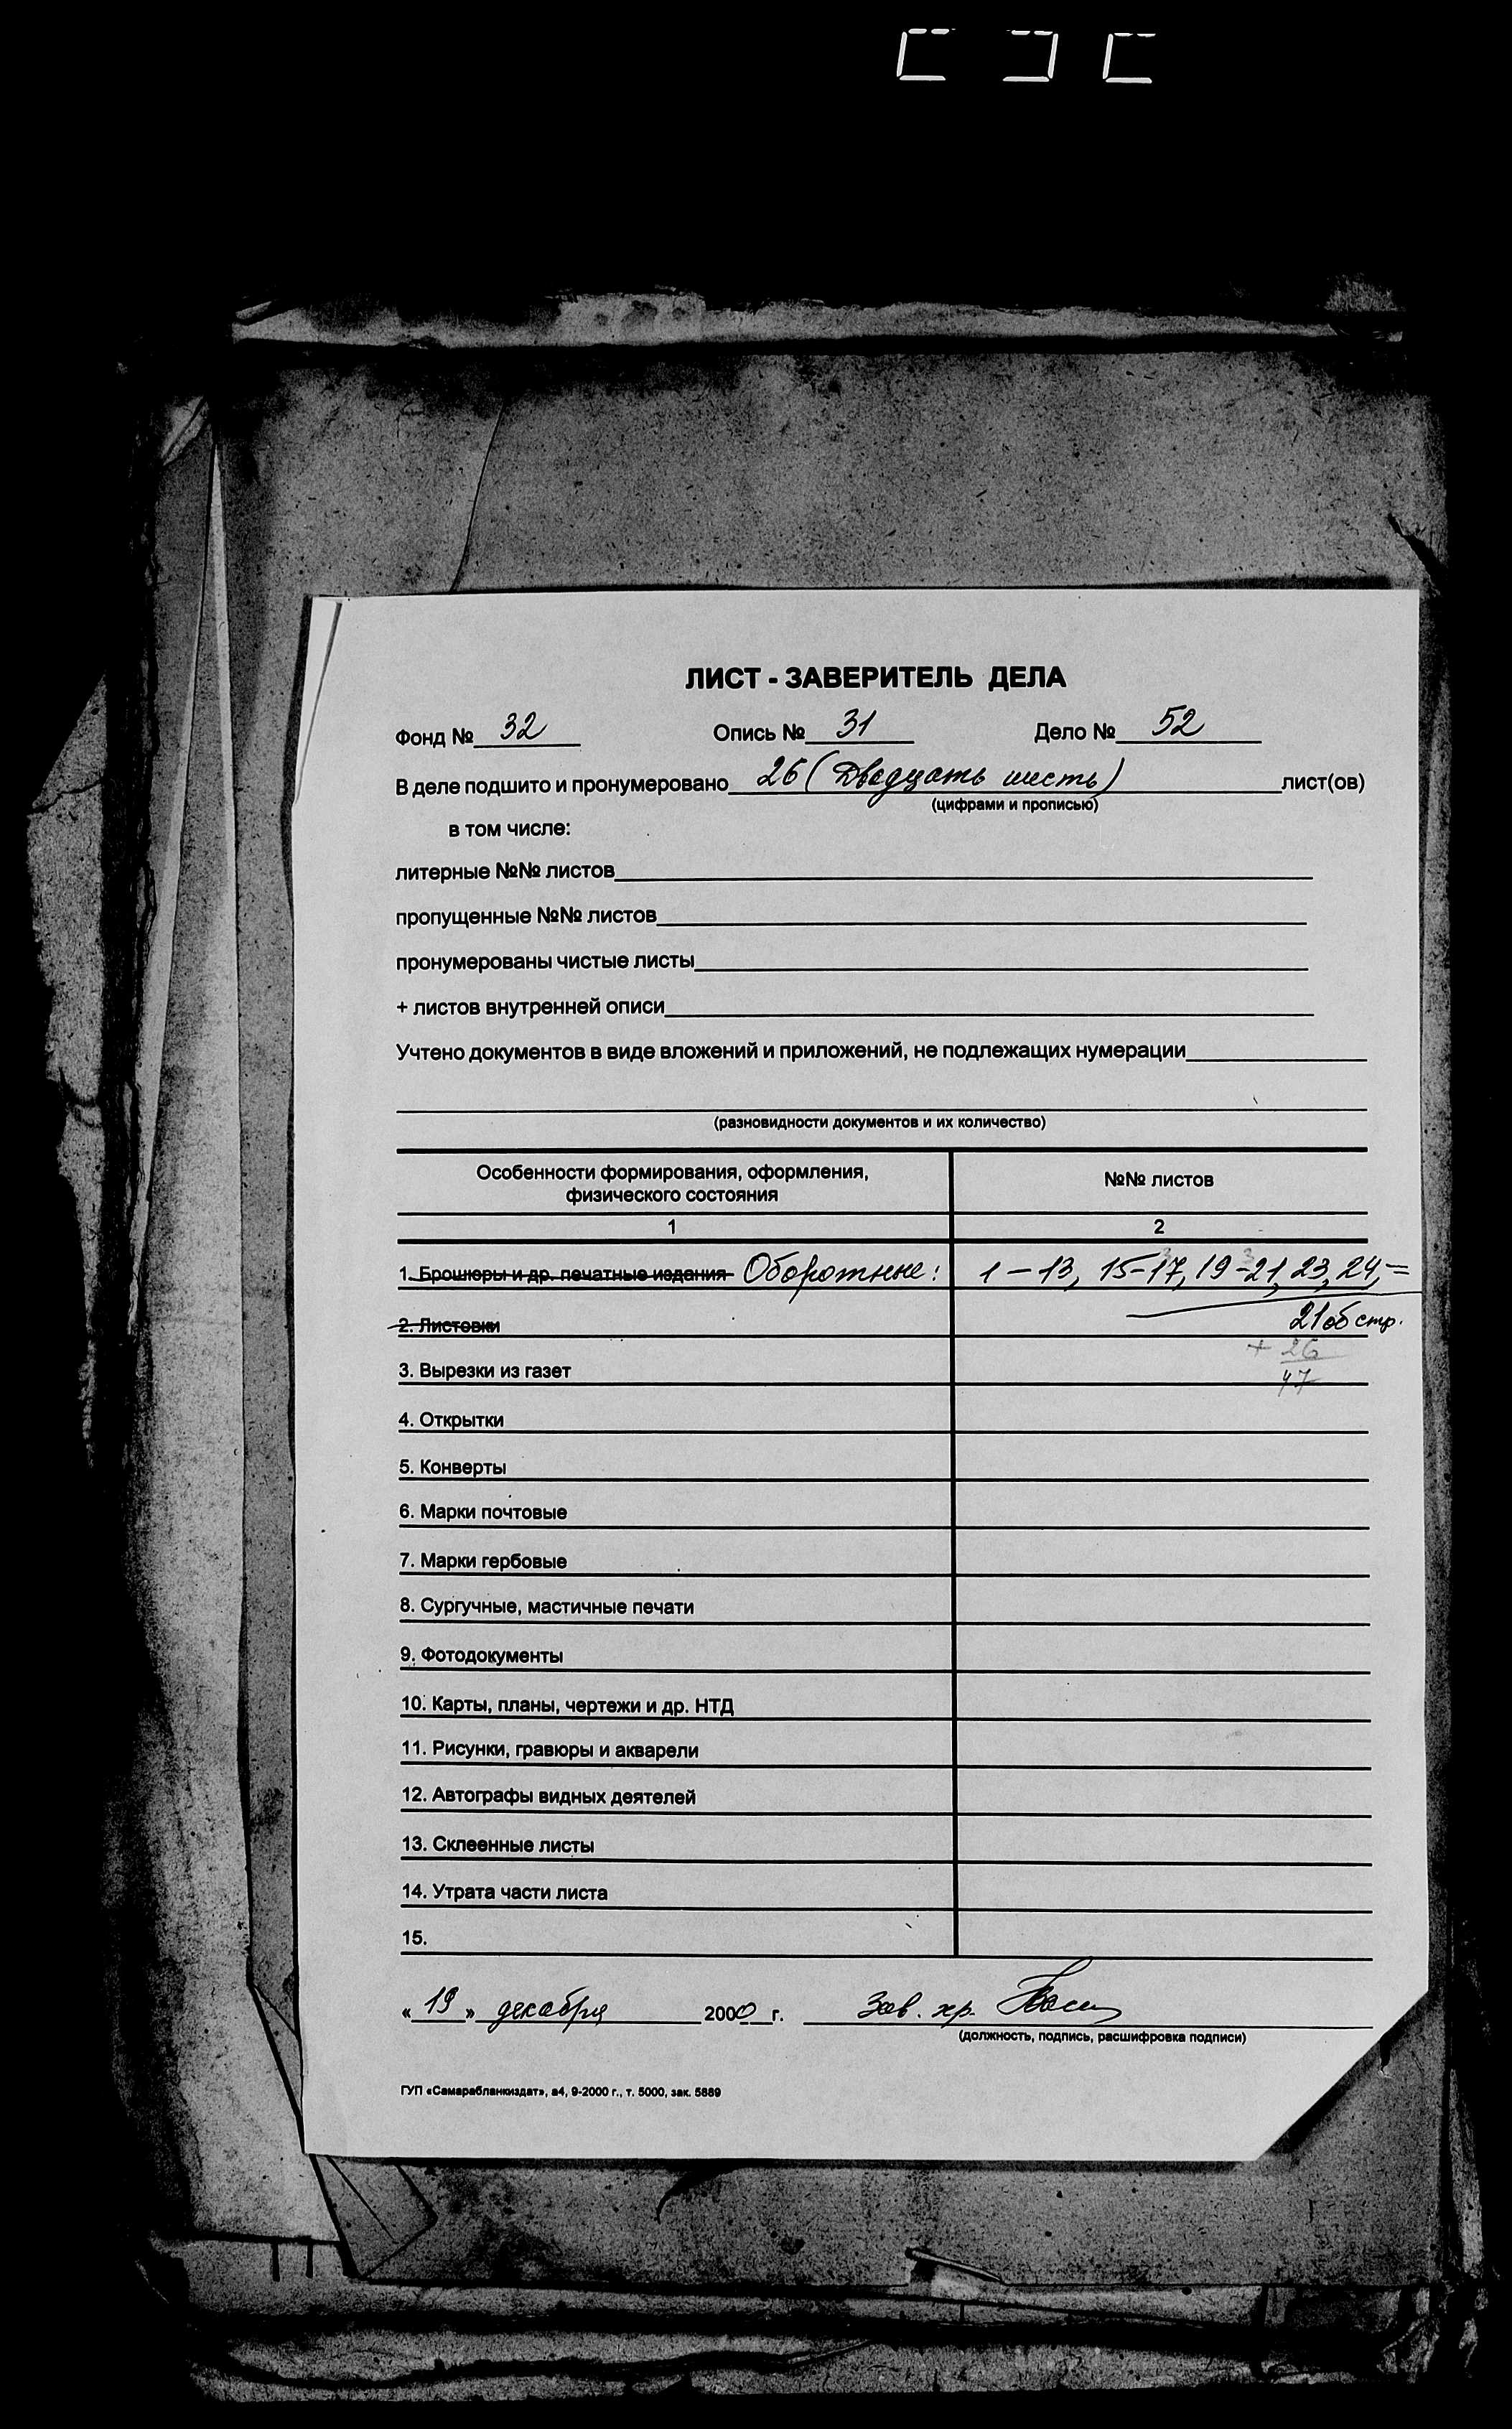 ЛИСТ - ЗАВЕРИТЕЛЬ ДЕЛА
Фонд № 32 Опись № 31 Дело № 52
В деле подшито и пронумеровано 26 (Двадцать шесть) лист(ов)
(цифрами и прописью)
в том числе:
литерные №№ листов
пропущенные №№ листов
пронумерованы чистые листы
+ листов внутренней описи
Учтено документов в виде вложений и приложений, не подлежащих нумерации
(разновидности документов и их количество)
Особенности формирования, оформления,
физического состояния
№№ листов
1 2
1. Брошюры и др. печатные издания Оборотные: 1-13, 15-17, 19-21, 23, 24, =
3 3
2. Листовки 21 об стр.
+ 26
3. Вырезки из газет 47
4. Открытки
5. Конверты
6. Марки почтовые
7. Марки гербовые
8. Сургучные, мастичные печати
9. Фотодокументы
10. Карты, планы, чертежи и др. НТД
11. Рисунки, гравюры и акварели
12. Автографы видных деятелей
13. Склеенные листы
14. Утрата части листа
15.
« 19 » декабря 2000 г. Зав. хр.
(должность, подпись, расшифровка подписи)
ГУП «Самарабланкиздат», а4, 9-2000 г., т. 5000, зак. 5889